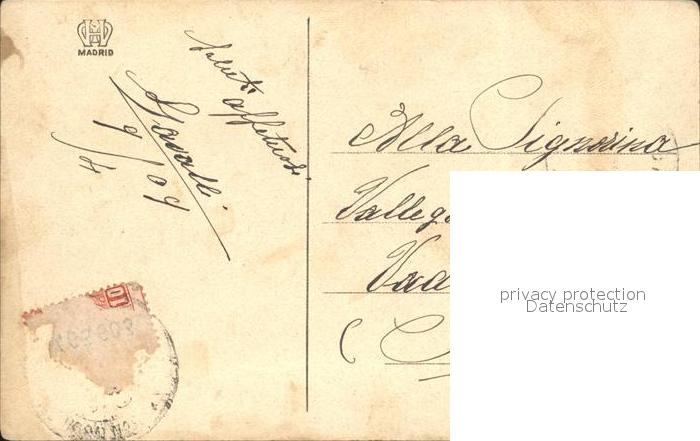 MADRID
Saluti
affettuosi
9/4 09
Alla Signorina
Valleg
Vad
(
privacy protection
Datenschutz